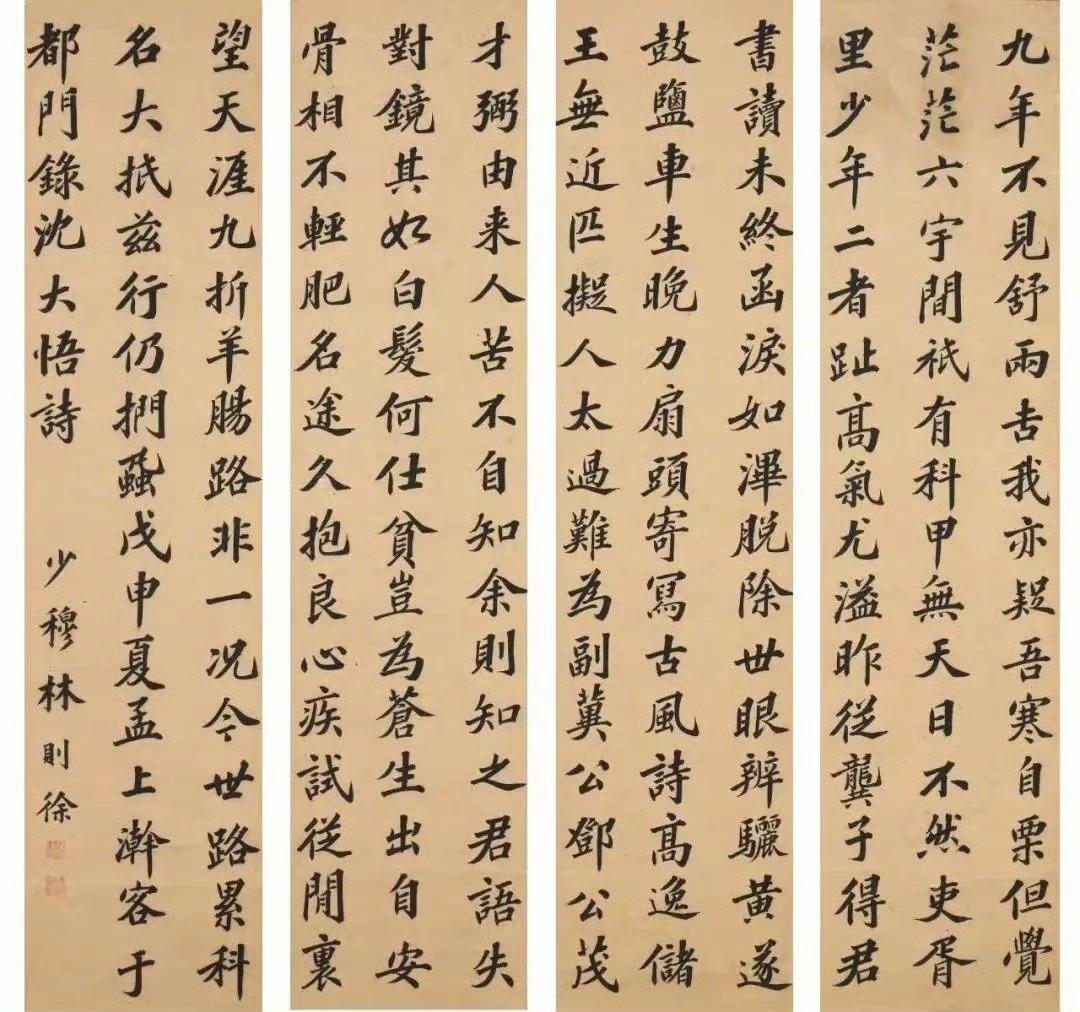 九年不見舒兩吉我亦疑吾寒自栗但覺
茫茫六宇間祇有科甲無天日不然吏胥
里少年二者趾高氣尤溢昨從龔子得君
書讀未終函淚如潷脱除世眼辨驪黄遂
鼓鹽車生晚力扇頭寄冩古風詩高逸儲
王無近匹擬人太過難為副冀公鄧公茂
才弼由来人苦不自知余則知之君語失
對鏡其如白髮何仕貧豈為蒼生出自安
骨相不輕肥名途久抱良心疾試従閒裏
望天涯九折羊腸路非一况今世路累科
名大抵兹行仍捫蝨戊申夏孟上澣客于
都門錄沈大悟詩
少穆林則徐